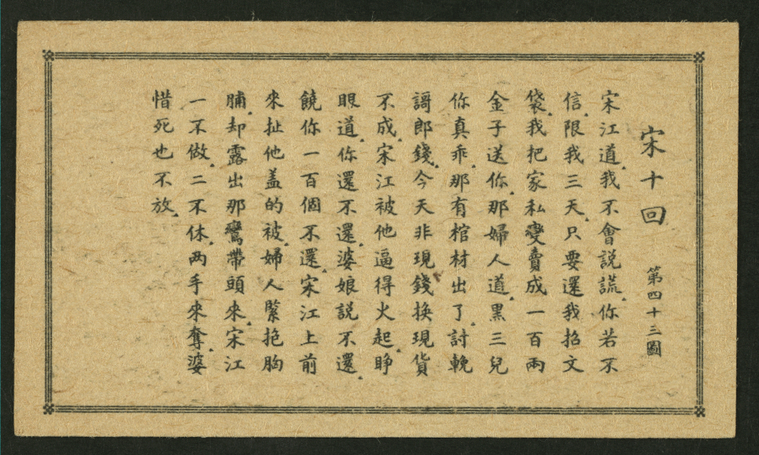 宋十回
第四十三圖
宋江道.我不會説謊.你若不
信.限我三天.只要還我招文
袋.我把家私變賣成一百兩
金子送你.那婦人道.黑三兒
你真乖.那有棺材出了.討輓
謌郎錢.今天非現錢换現貨
不成.宋江被他逼得火起.睜
眼道.你還不還.婆娘説不還.
饒你一百個不還.宋江上前
來扯他盖的被.婦人緊抱胸
脯.却露出那鸞帶頭來.宋江
一不做.二不休.两手來奪.婆
惜死也不放.